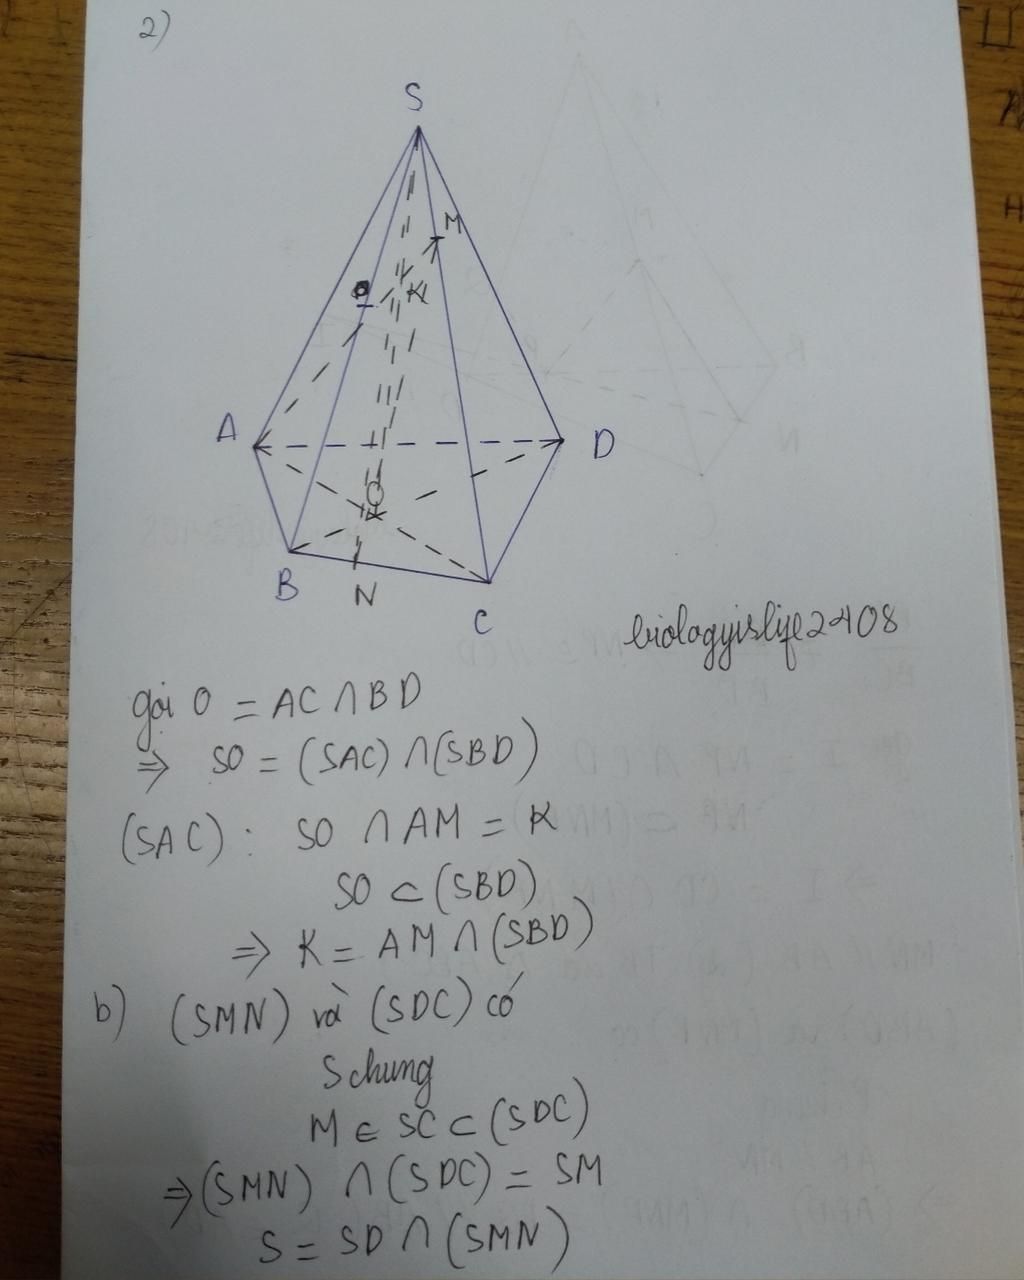 2)
S
M
K
A
D
O
B
N
C
biologyislife2408
gọi O = AC ∩ BD
⇒ SO = (SAC) ∩ (SBD)
(SAC) : SO ∩ AM = K
SO ⊂ (SBD)
⇒ K = AM ∩ (SBD)
b) (SMN) và (SDC) có
S chung
M ∈ SC ⊂ (SDC)
⇒ (SMN) ∩ (SDC) = SM
S = SD ∩ (SMN)